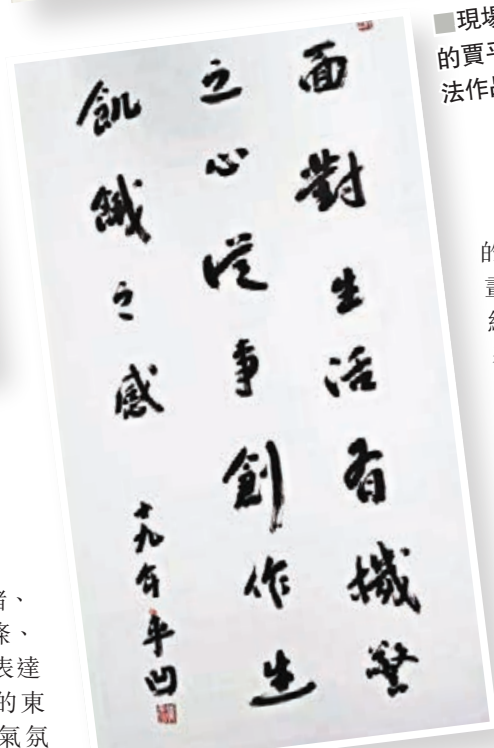 ■現場
的賈平
法作
面對生活有機警
之心從事創作生
飢餓之感
十九年平凹
的
畫
、
、
表達
的東
氣氛